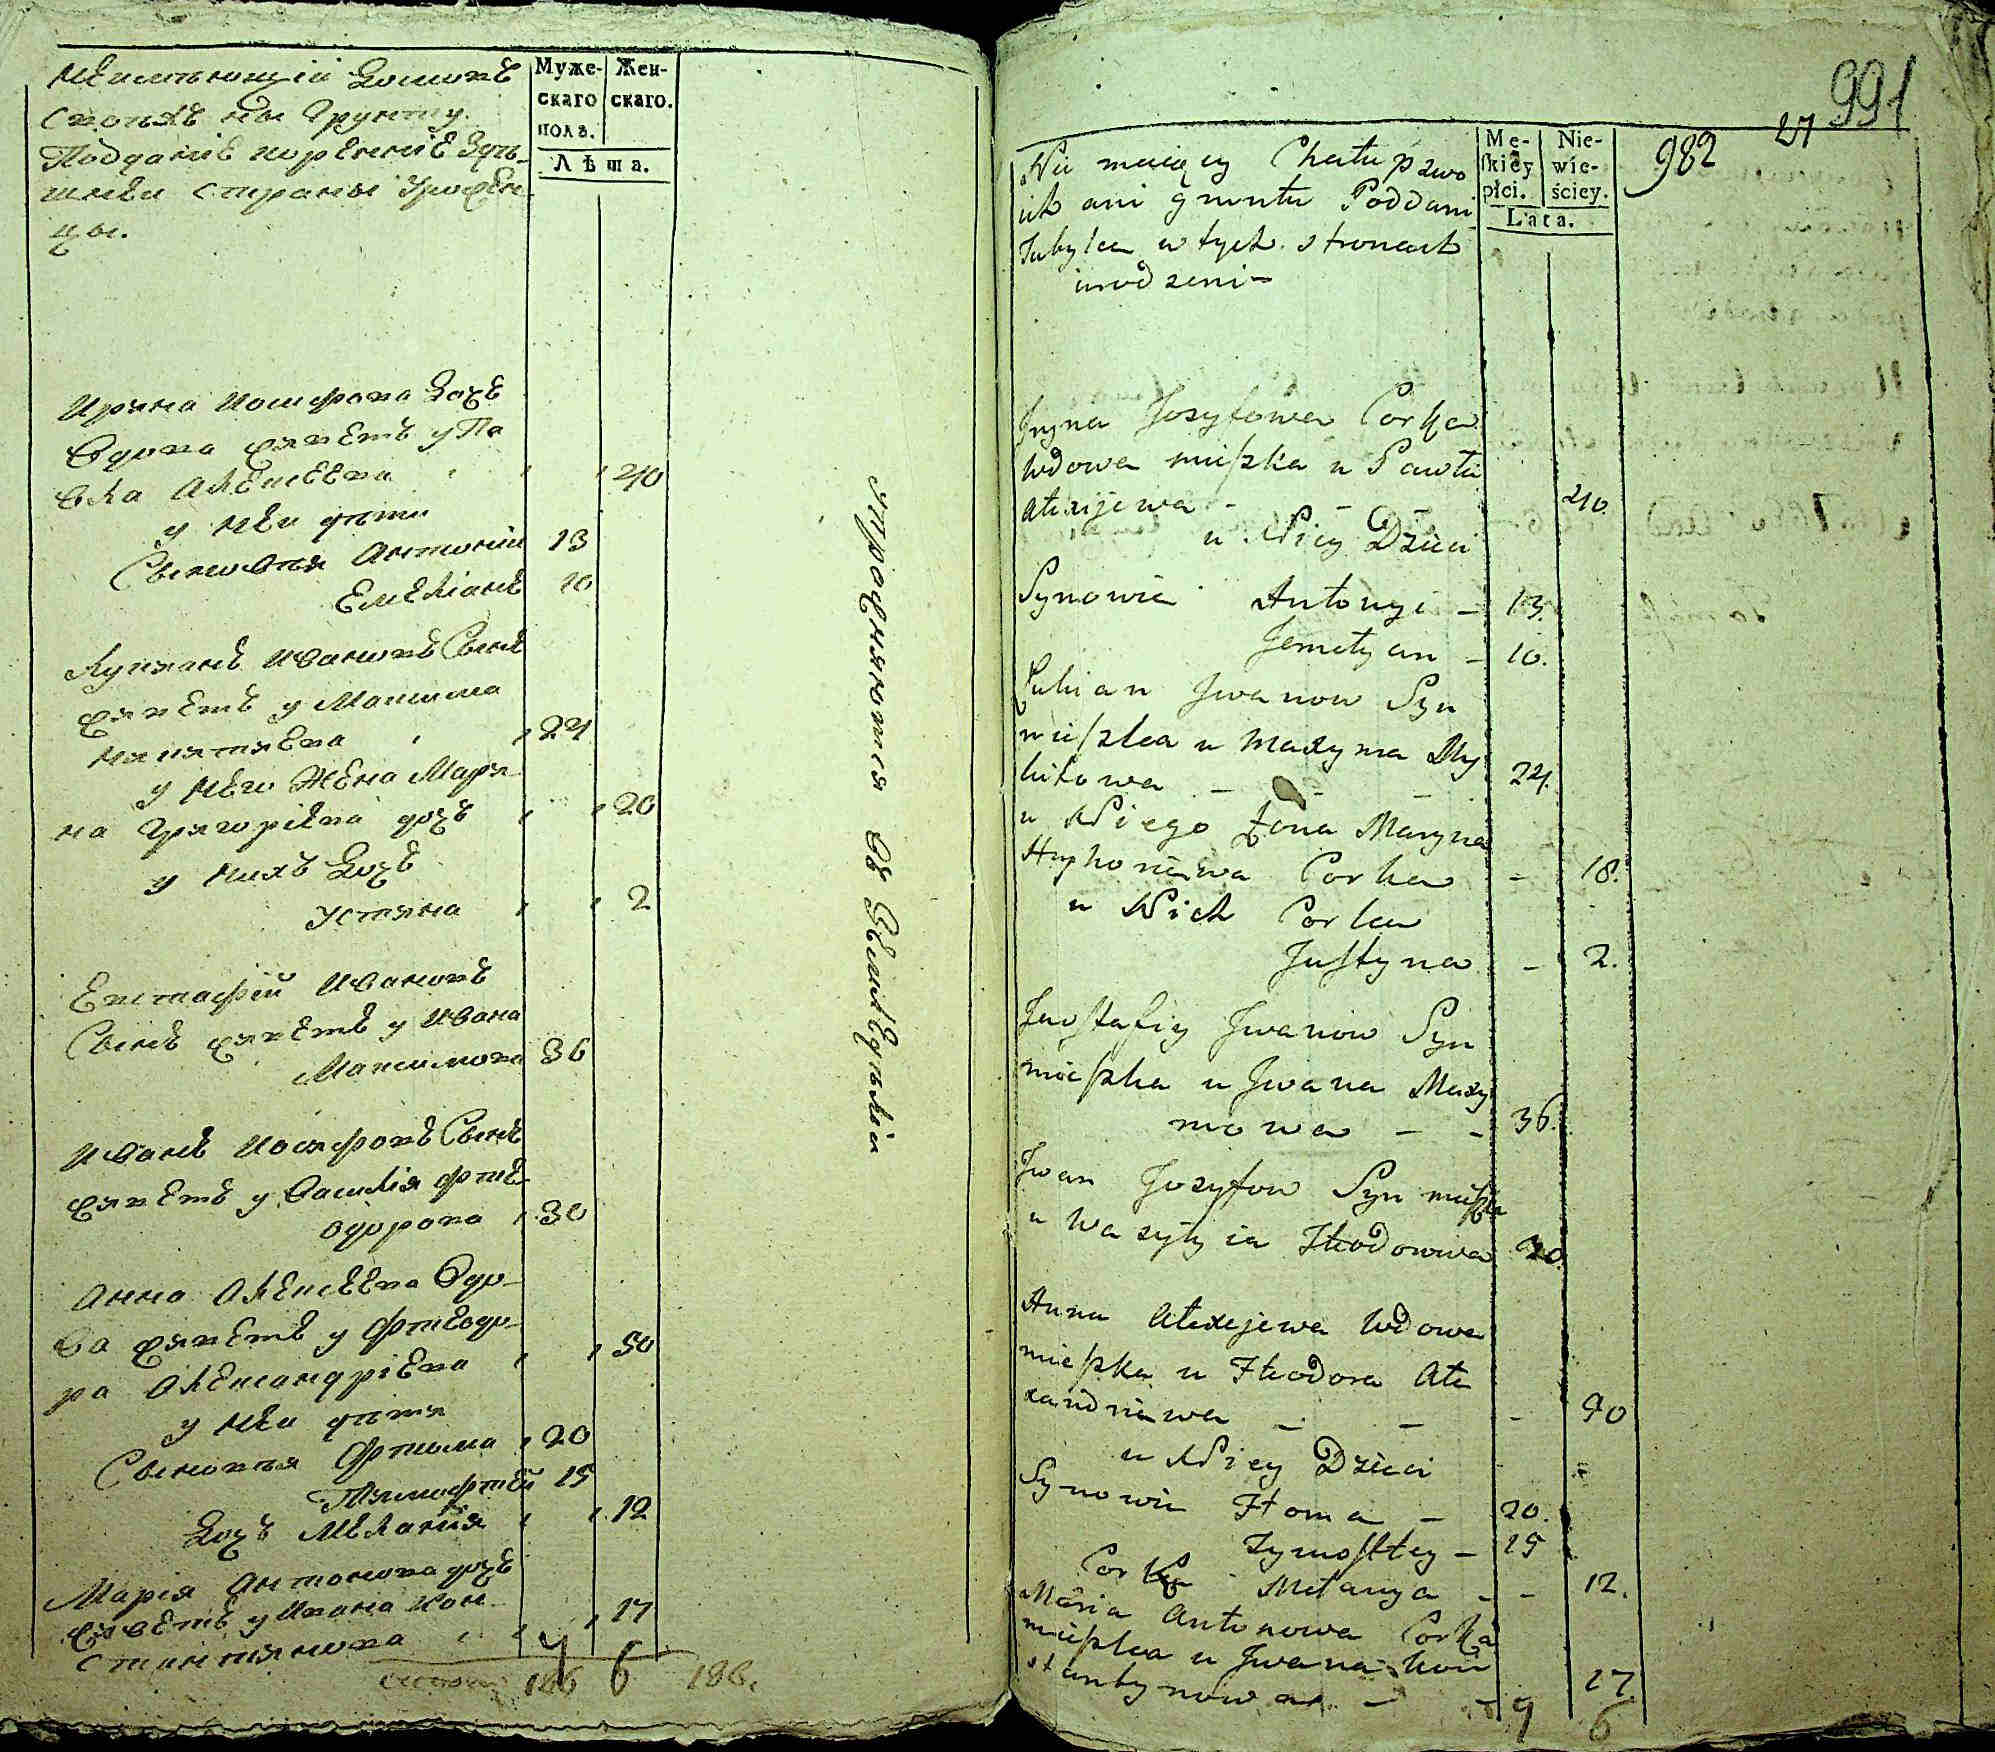 неимѣющіи домовъ
своихъ ны грунту.
Подданіе коренніе здѣ-
шнеи страны урожен-
цы.
Муже-
скаго
полѫ.
Жен-
скаго.
Лѣта.
Ирина Іосифова дочь
вдова живетъ у Па
вла Алексеева 40
у неи дѣти
Сыновья Антоній 13
Емеліанъ 10
Лукіянъ Ивановъ Сынъ
живетъ у Максима
Микитаева 24
у него Жена Мари-
на Григоріева дочь 20
у нихъ дочь
Устина 2
Евстафій Ивановъ
Сынъ живетъ у Ивана
Максимова 36
Иванъ Іосифовъ Сынъ
живетъ у Василія Фте-
одорова 30
Анна Алексеева вдо-
ва живетъ у Фтеодо-
ра Александріева 50
у неи дѣти
Сыновья Фтома 20
Тимофтей 15
дочь Меланія 12
Марія Антонова дочь
живетъ у Ивана Кон-
стантинова 17
9 6
186 186.
Упражняются въ Земледѣліи
991
982
27
Nie maiący Chatu p zwo
ich ani gruntu Poddani
Tubylca w tych stronach
urodzeni
Mę-
skiey
płci.
Nie-
wie-
ściey.
Lata.
Iryna Jozyfowa Corka
wdowa mieszka u Pawła
Alexijewa 40.
u Niey Dzieci
Synowie Antonyi 13.
Jemelyan 10.
Lukian Jwanow Syn
mieszka u Maxyma My
kitowa 24.
u Niego Żona Maryna
Hryhoriewa Corka 18.
u Nich Corka
Justyna 2.
Jewstafiy Jwanow Syn
mieszka u Jwana Maxy
mowa 36.
Jwan Jozyfow Syn mieszka
u Wasylyia Fteodorowa 30
Anna Alexejewa Wdowa
mieszka u Fteodora Ale
xandriewa 40
u Niey Dzieci
Synowie Ftoma 20.
Tymoftey 15
Corka Melanya 12.
Maria Antonowa Corka
mieszka u Jwana Kon
stantynowa 17
9 6